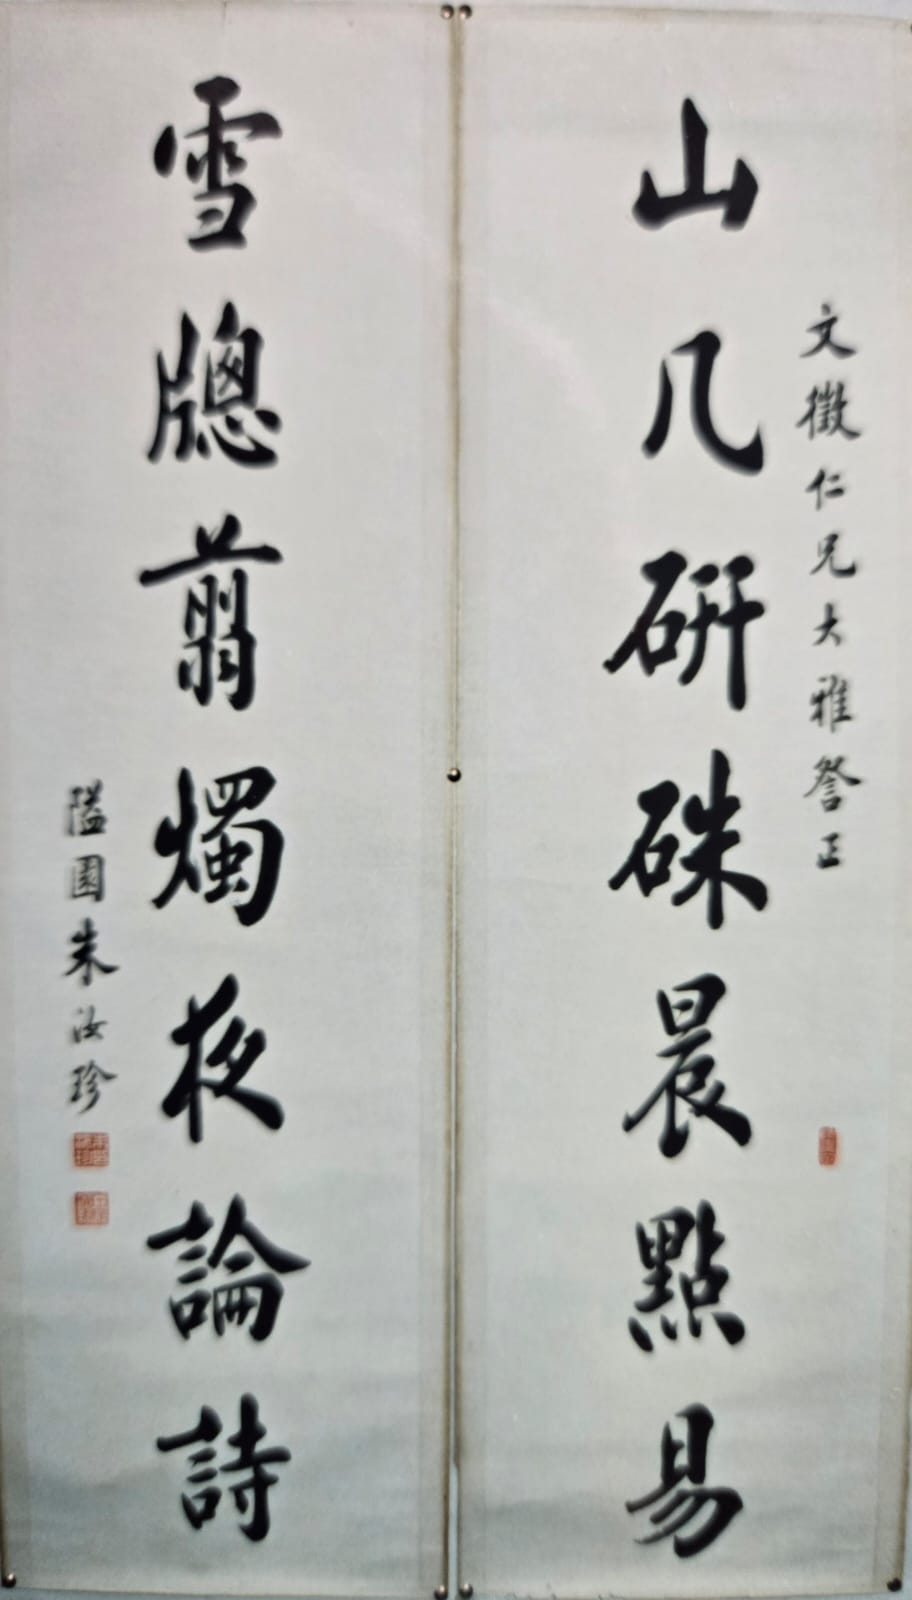 文徵仁兄大雅詧正
山几研硃晨點易
雪牕翦燭夜論詩
隘園朱汝珍